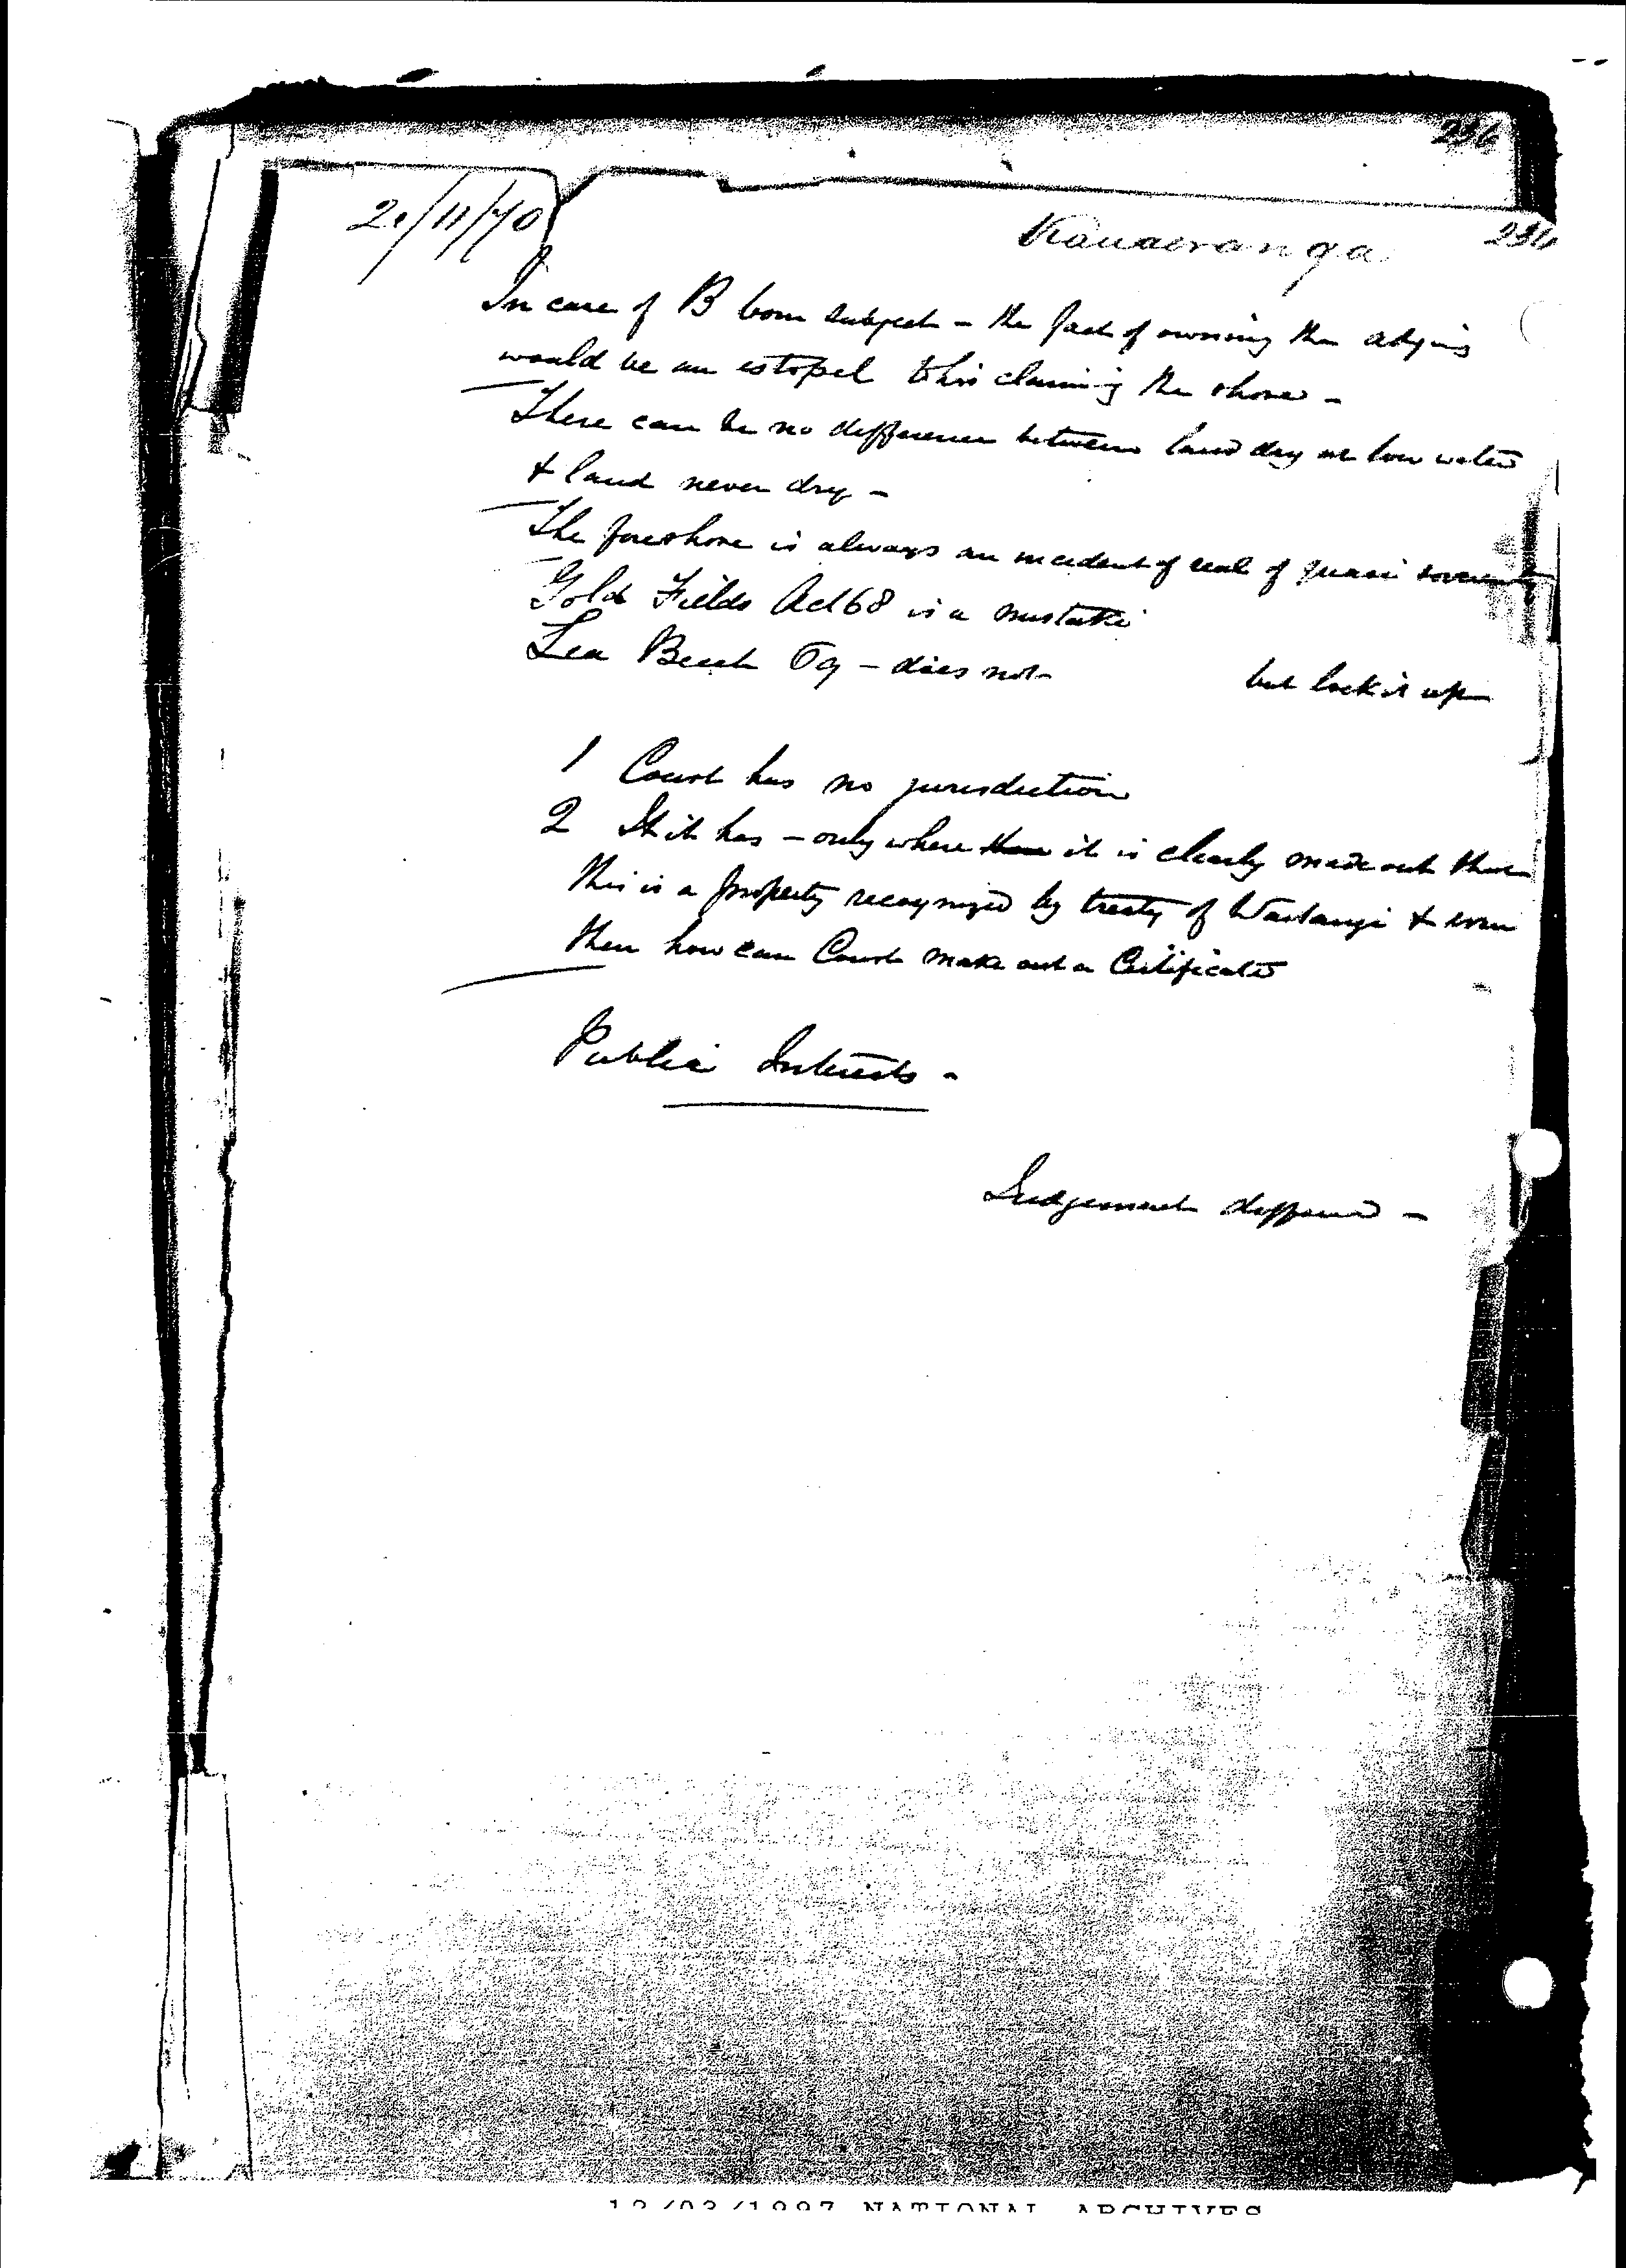 236
2./11/70
Kauaeranga
236
In case of B born subject - the fact of owning the adjoing
would be an estopel to his claiming the shore -
There can be no difference between land dry at low water
& land never dry -
The foreshore is always an incident of real of quasi
Gold Fields Act 68 is a mistake
Sea Beach - does not but lock it up
1 Court has no jurisdiction
2 If it has - only where it is clearly made out that
this is a property recognized by treaty of Waitangi & even
then how can Court make out a Certificate
Public Interests -
Judgement deffered -
12/03/1997 NATIONAL ARCHIVES